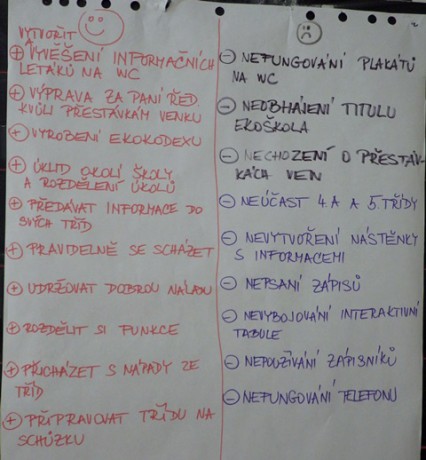 VYTVOŘIT
⊕ VYVĚŠENÍ INFORMAČNÍCH
LETÁKŮ NA WC
⊕ VÝPRAVA ZA PANÍ ŘED.
KVŮLI PŘESTÁVKÁM VENKU
⊕ VYROBENÍ EKOKODEXU
⊕ ÚKLID OKOLÍ ŠKOLY
A ROZDĚLENÍ ÚKOLŮ
⊕ PŘEDÁVAT INFORMACE DO
SVÝCH TŘÍD
⊕ PRAVIDELNĚ SE SCHÁZET
⊕ UDRŽOVAT DOBROU NÁLADU
⊕ ROZDĚLIT SI FUNKCE
⊕ PŘICHÁZET S NÁPADY ZE
TŘÍD
⊕ PŘIPRAVOVAT TŘÍDU NA
SCHŮZKU
⊖ NEFUNGOVÁNÍ PLAKÁTŮ
NA WC
⊖ NEOBHÁJENÍ TITULU
EKOŠKOLA
⊖ NECHOZENÍ O PŘESTÁV-
KÁCH VEN
⊖ NEÚČAST 4.A A 5.TŘÍDY
⊖ NEVYTVOŘENÍ NÁSTĚNKY
S INFORMACEMI
⊖ NEPSANÍ ZÁPISŮ
⊖ NEVYBOJOVÁNÍ INTERAKTIVNÍ
TABULE
⊖ NEPOUŽÍVÁNÍ ZÁPISNÍKŮ
⊖ NEFUNGOVÁNÍ TELEFONU